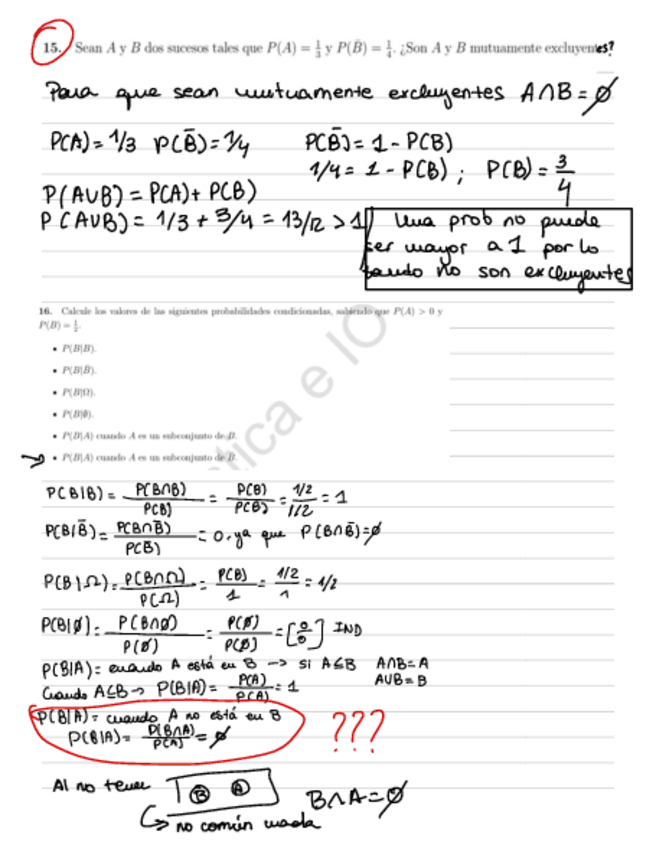 15. Sean A y B dos sucesos tales que P(A) = 1/3 y P(B̄) = 1/4. ¿Son A y B mutuamente excluyentes?
Para que sean mutuamente excluyentes A∩B = ∅
P(A) = 1/3 P(B̄) = 1/4 P(B̄) = 1 - P(B)
1/4 = 1 - P(B) ; P(B) = 3/4
P(A∪B) = P(A) + P(B)
P(A∪B) = 1/3 + 3/4 = 13/12 > 1 // Una prob no puede
ser mayor a 1 por lo
tando no son excluyentes
16. Calcule los valores de las siguientes probabilidades condicionadas, sabiendo que P(A) > 0 y
P(B) = 1/2.
• P(B|B).
• P(B|B̄).
• P(B|Ω).
• P(B|∅).
• P(B|A) cuando A es un subconjunto de B.
• P(B|A) cuando A es un subconjunto de B̄.
tica e IO
P(B|B) = P(B∩B)/P(B) = P(B)/P(B) = 1/2/1/2 = 1
P(B|B̄) = P(B∩B̄)/P(B̄) = 0, ya que P(B∩B̄) = ∅
P(B|Ω) = P(B∩Ω)/P(Ω) = P(B)/1 = 1/2/1 = 1/2
P(B|∅) = P(B∩∅)/P(∅) = P(∅)/P(∅) = [0/0] IND
P(B|A) = cuando A está en B → si A⊆B A∩B = A
A∪B = B
Cuando A⊆B → P(B|A) = P(A)/P(A) = 1
P(B|A) = cuando A no está en B
P(B|A) = P(B∩A)/P(A) = ∅
???
Al no tener B A B∩A = ∅
↳ no común nada